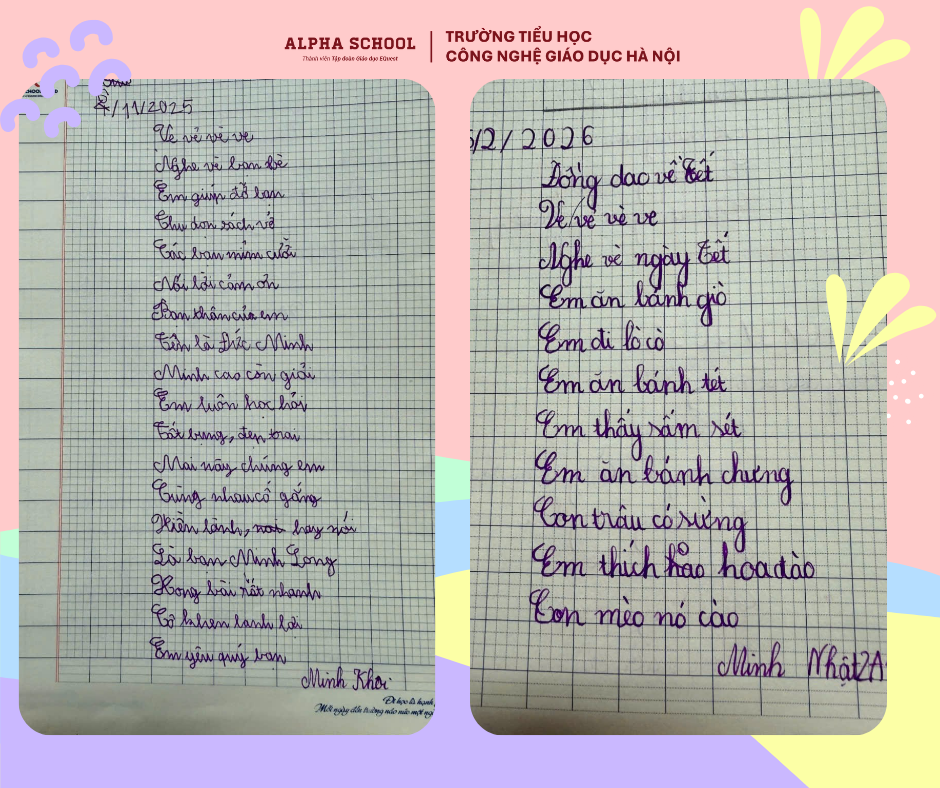 ALPHA SCHOOL
Thành viên Tập đoàn Giáo dục EQuest
TRƯỜNG TIỂU HỌC
CÔNG NGHỆ GIÁO DỤC HÀ NỘI
/11/2025
Ve vẻ vè ve
Nghe vè bạn bè
Em giúp đỡ bạn
Thu dọn sách vở
Các bạn mỉm cười
Nói lời cảm ơn
Bạn thân của em
Tên là Đức Minh
Minh cao còn giỏi
Em luôn học hỏi
Tốt bụng, đẹp trai
Mai này chúng em
Cùng nhau cố gắng
Hiền lành, hay nói
Là bạn Minh Long
Xong bài rất nhanh
Cô khen lanh lợi
Em yêu quý bạn
Minh Khôi
Đi học là hạnh
Mỗi ngày đến trường náo nức một ng
5/2/2026
Đồng dao về Tết
Ve vẻ vè ve
Nghe vè ngày Tết
Em ăn bánh giò
Em đi lò cò
Em ăn bánh tét
Em thấy sấm sét
Em ăn bánh chưng
Con trâu có sừng
Em thích hoa đào
Con mèo nó cào
Minh Nhật 2A